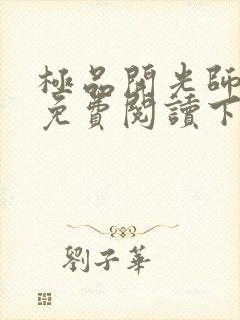 極品開光師
免費閱讀下
劉子華